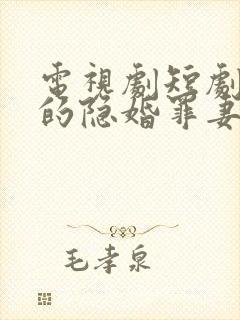 電視劇短劇
的隐婚罪妻
毛孝泉